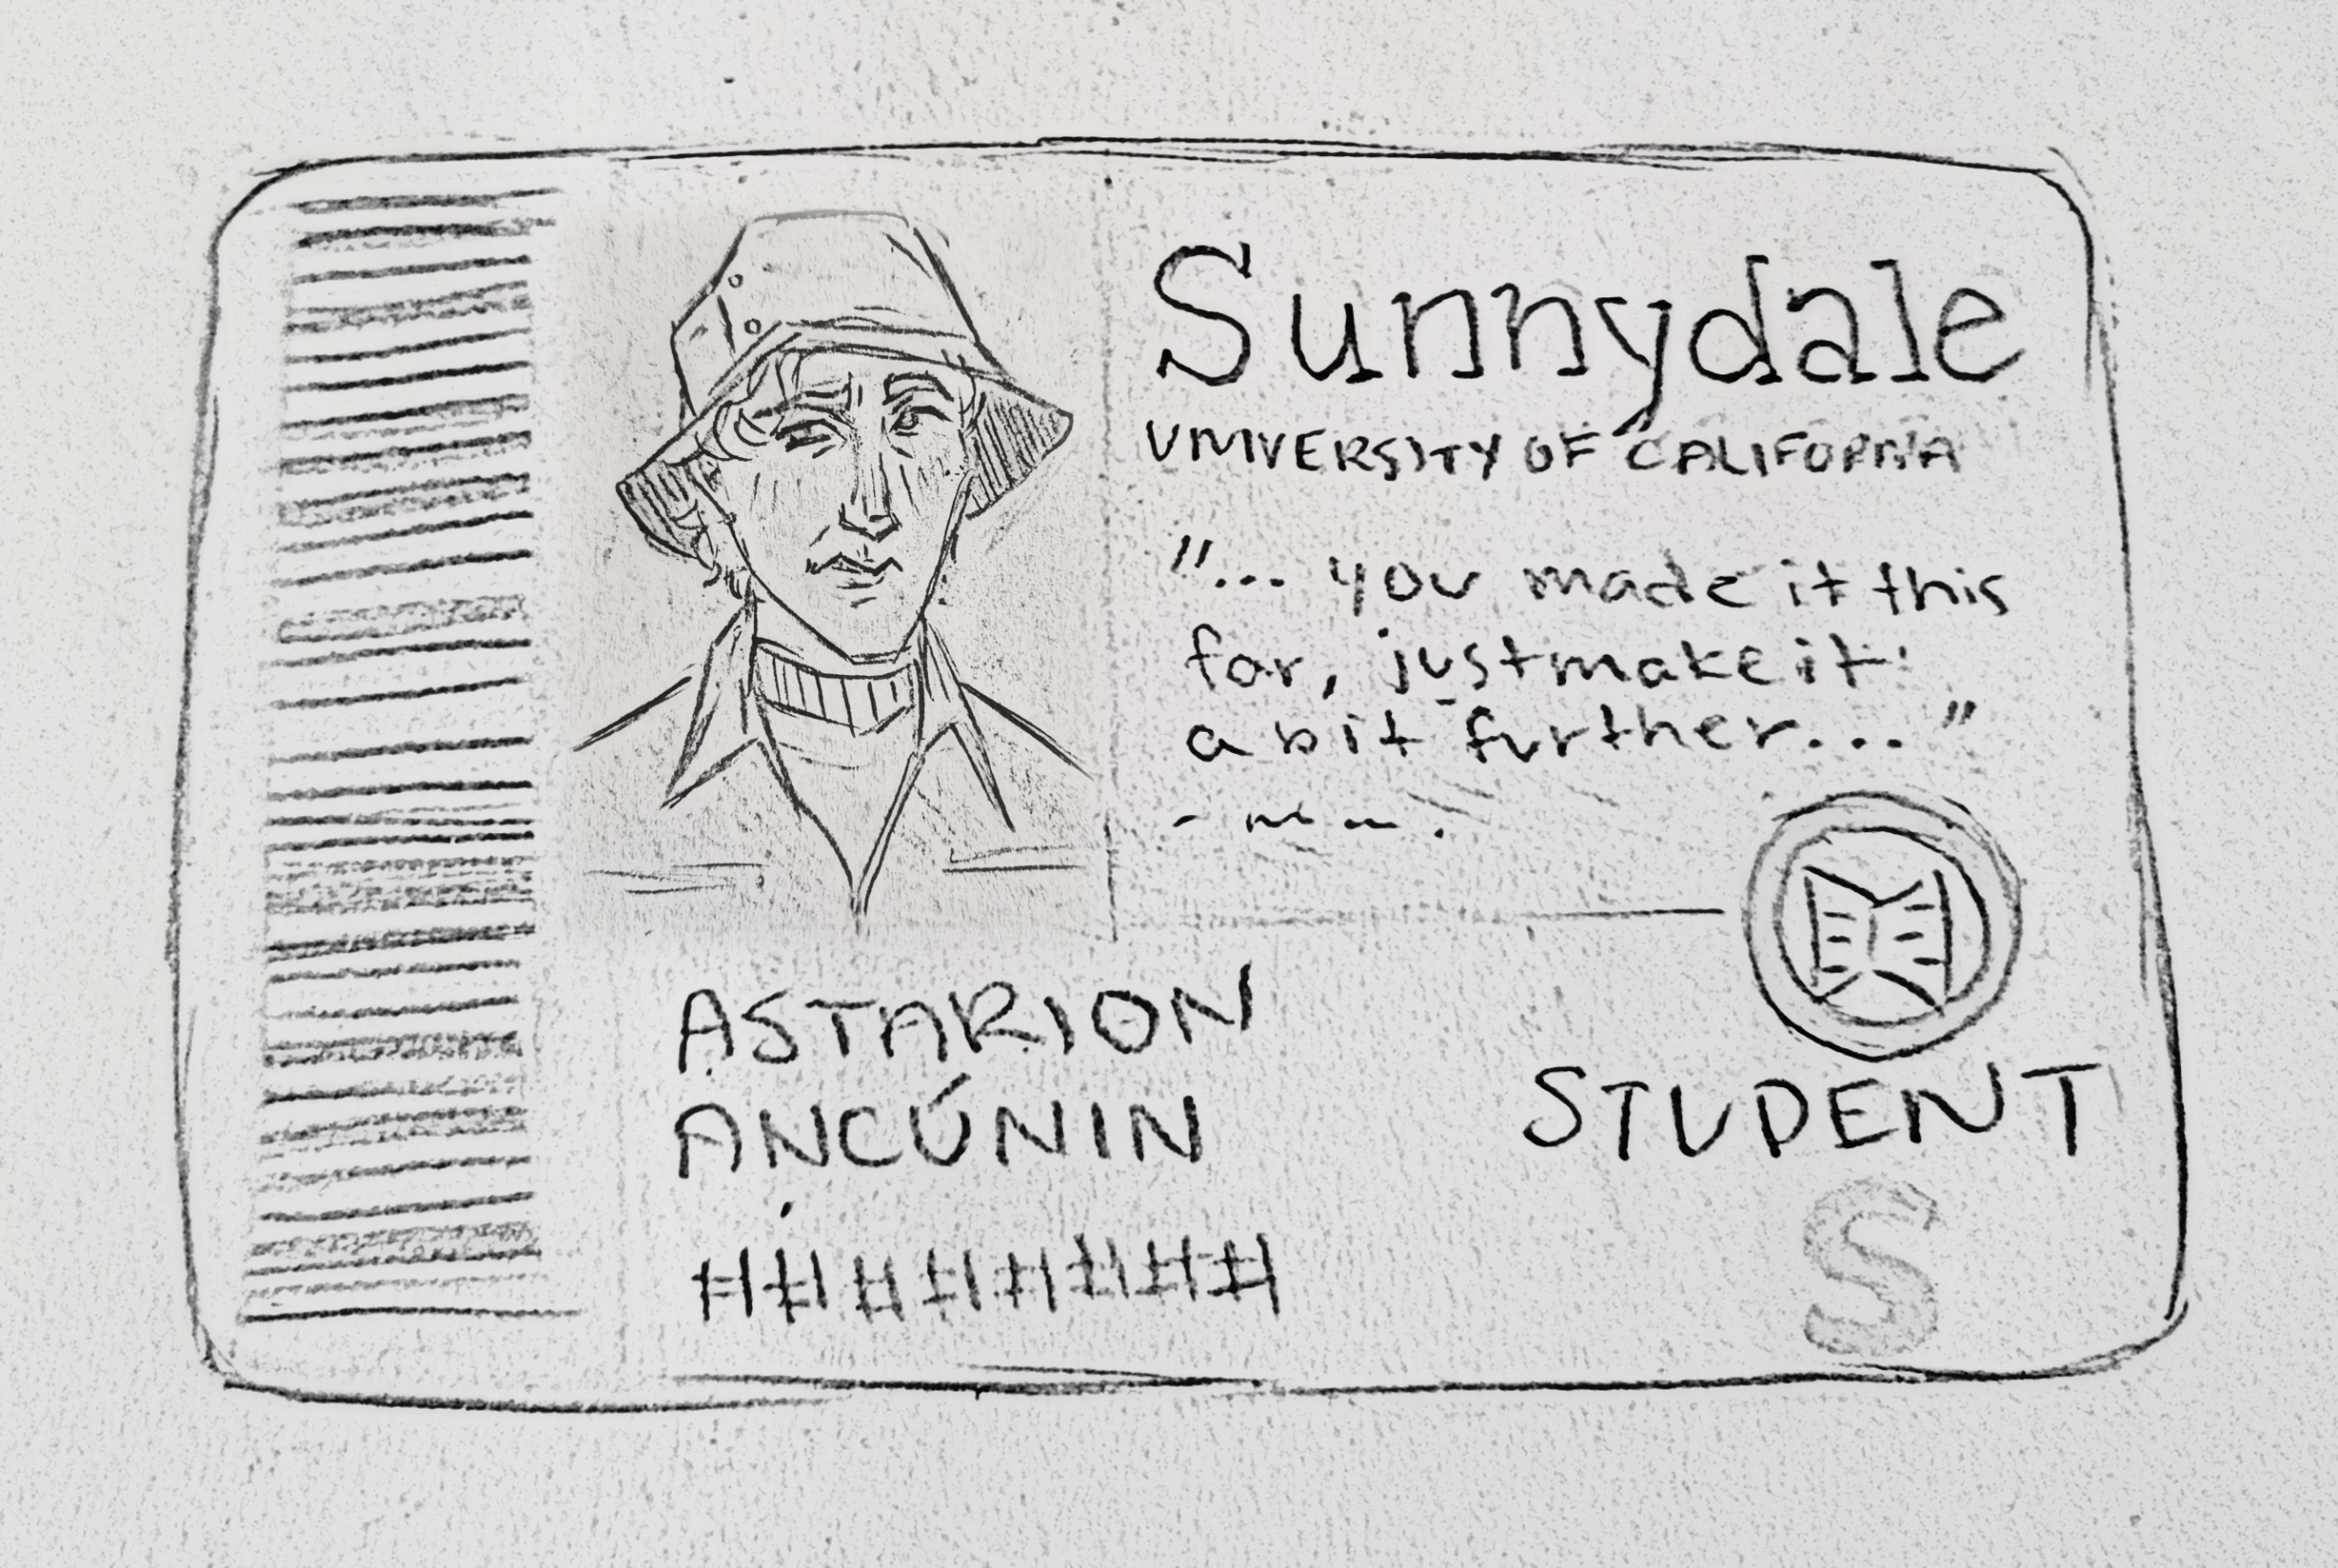 Sunnydale
UNIVERSITY OF CALIFORNIA
"... you made it this
far, just make it
a bit further..."
ASTARION
ANCÚNIN
########
STUDENT
S